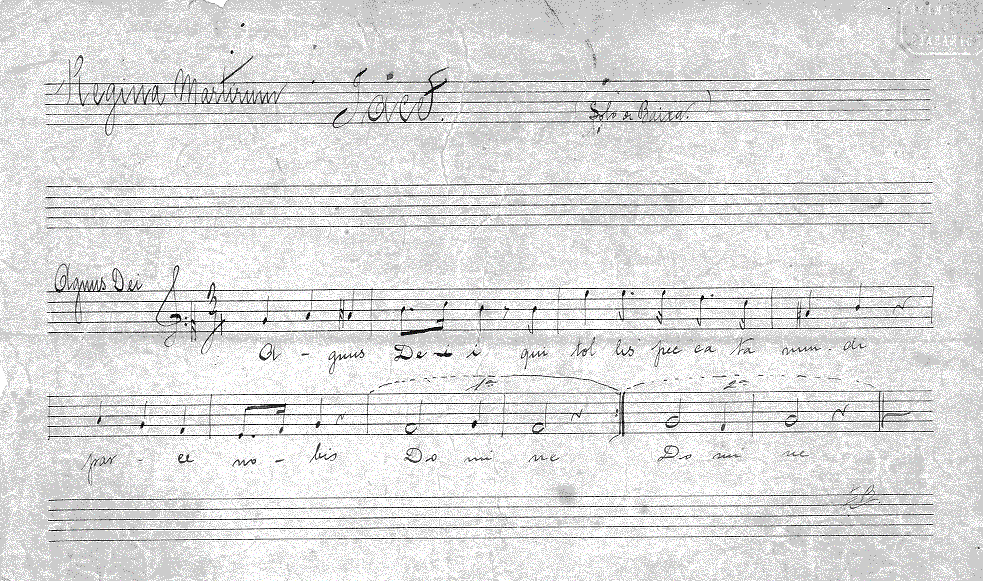 Regina Martirum Tacet. (Solo de Baixa.)
Agnus Dei 3
A - gnus De - i i qui tol lis pec ca ta mun - di
1ª 2ª
par - ce no - bis Do mi ne Do mi ne